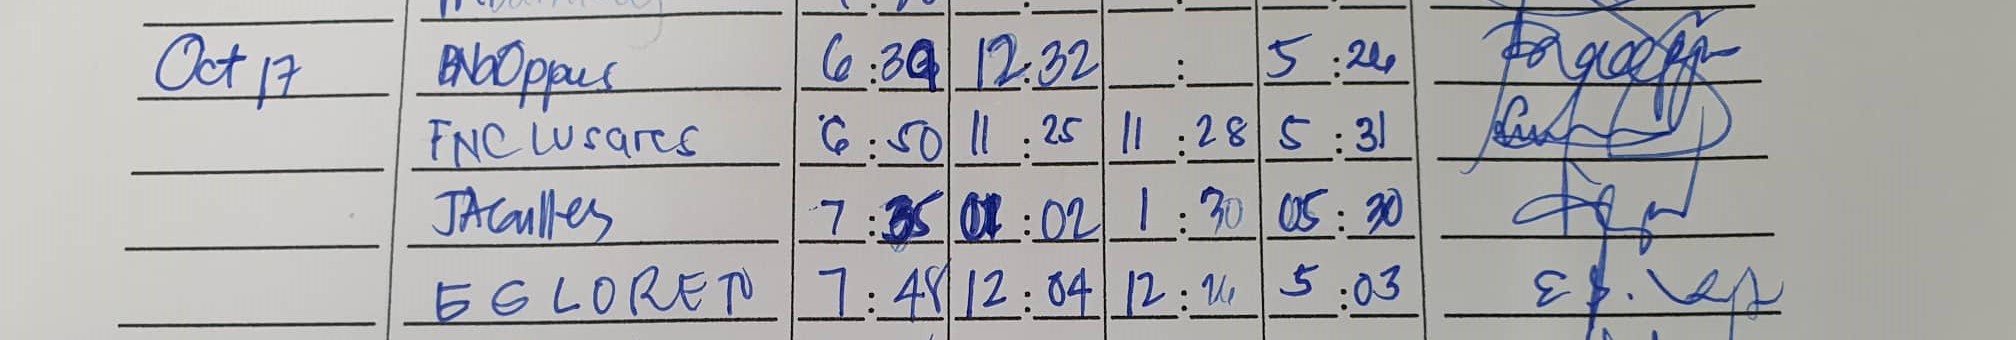 Oct 17 BNoOppus 6:39 12:32 : 5:24
FNC Lusares 6:50 11:25 11:28 5:31
JACaulles 7:35 01:02 1:30 05:30
EGLORETO 7:48 12:04 12:26 5:03